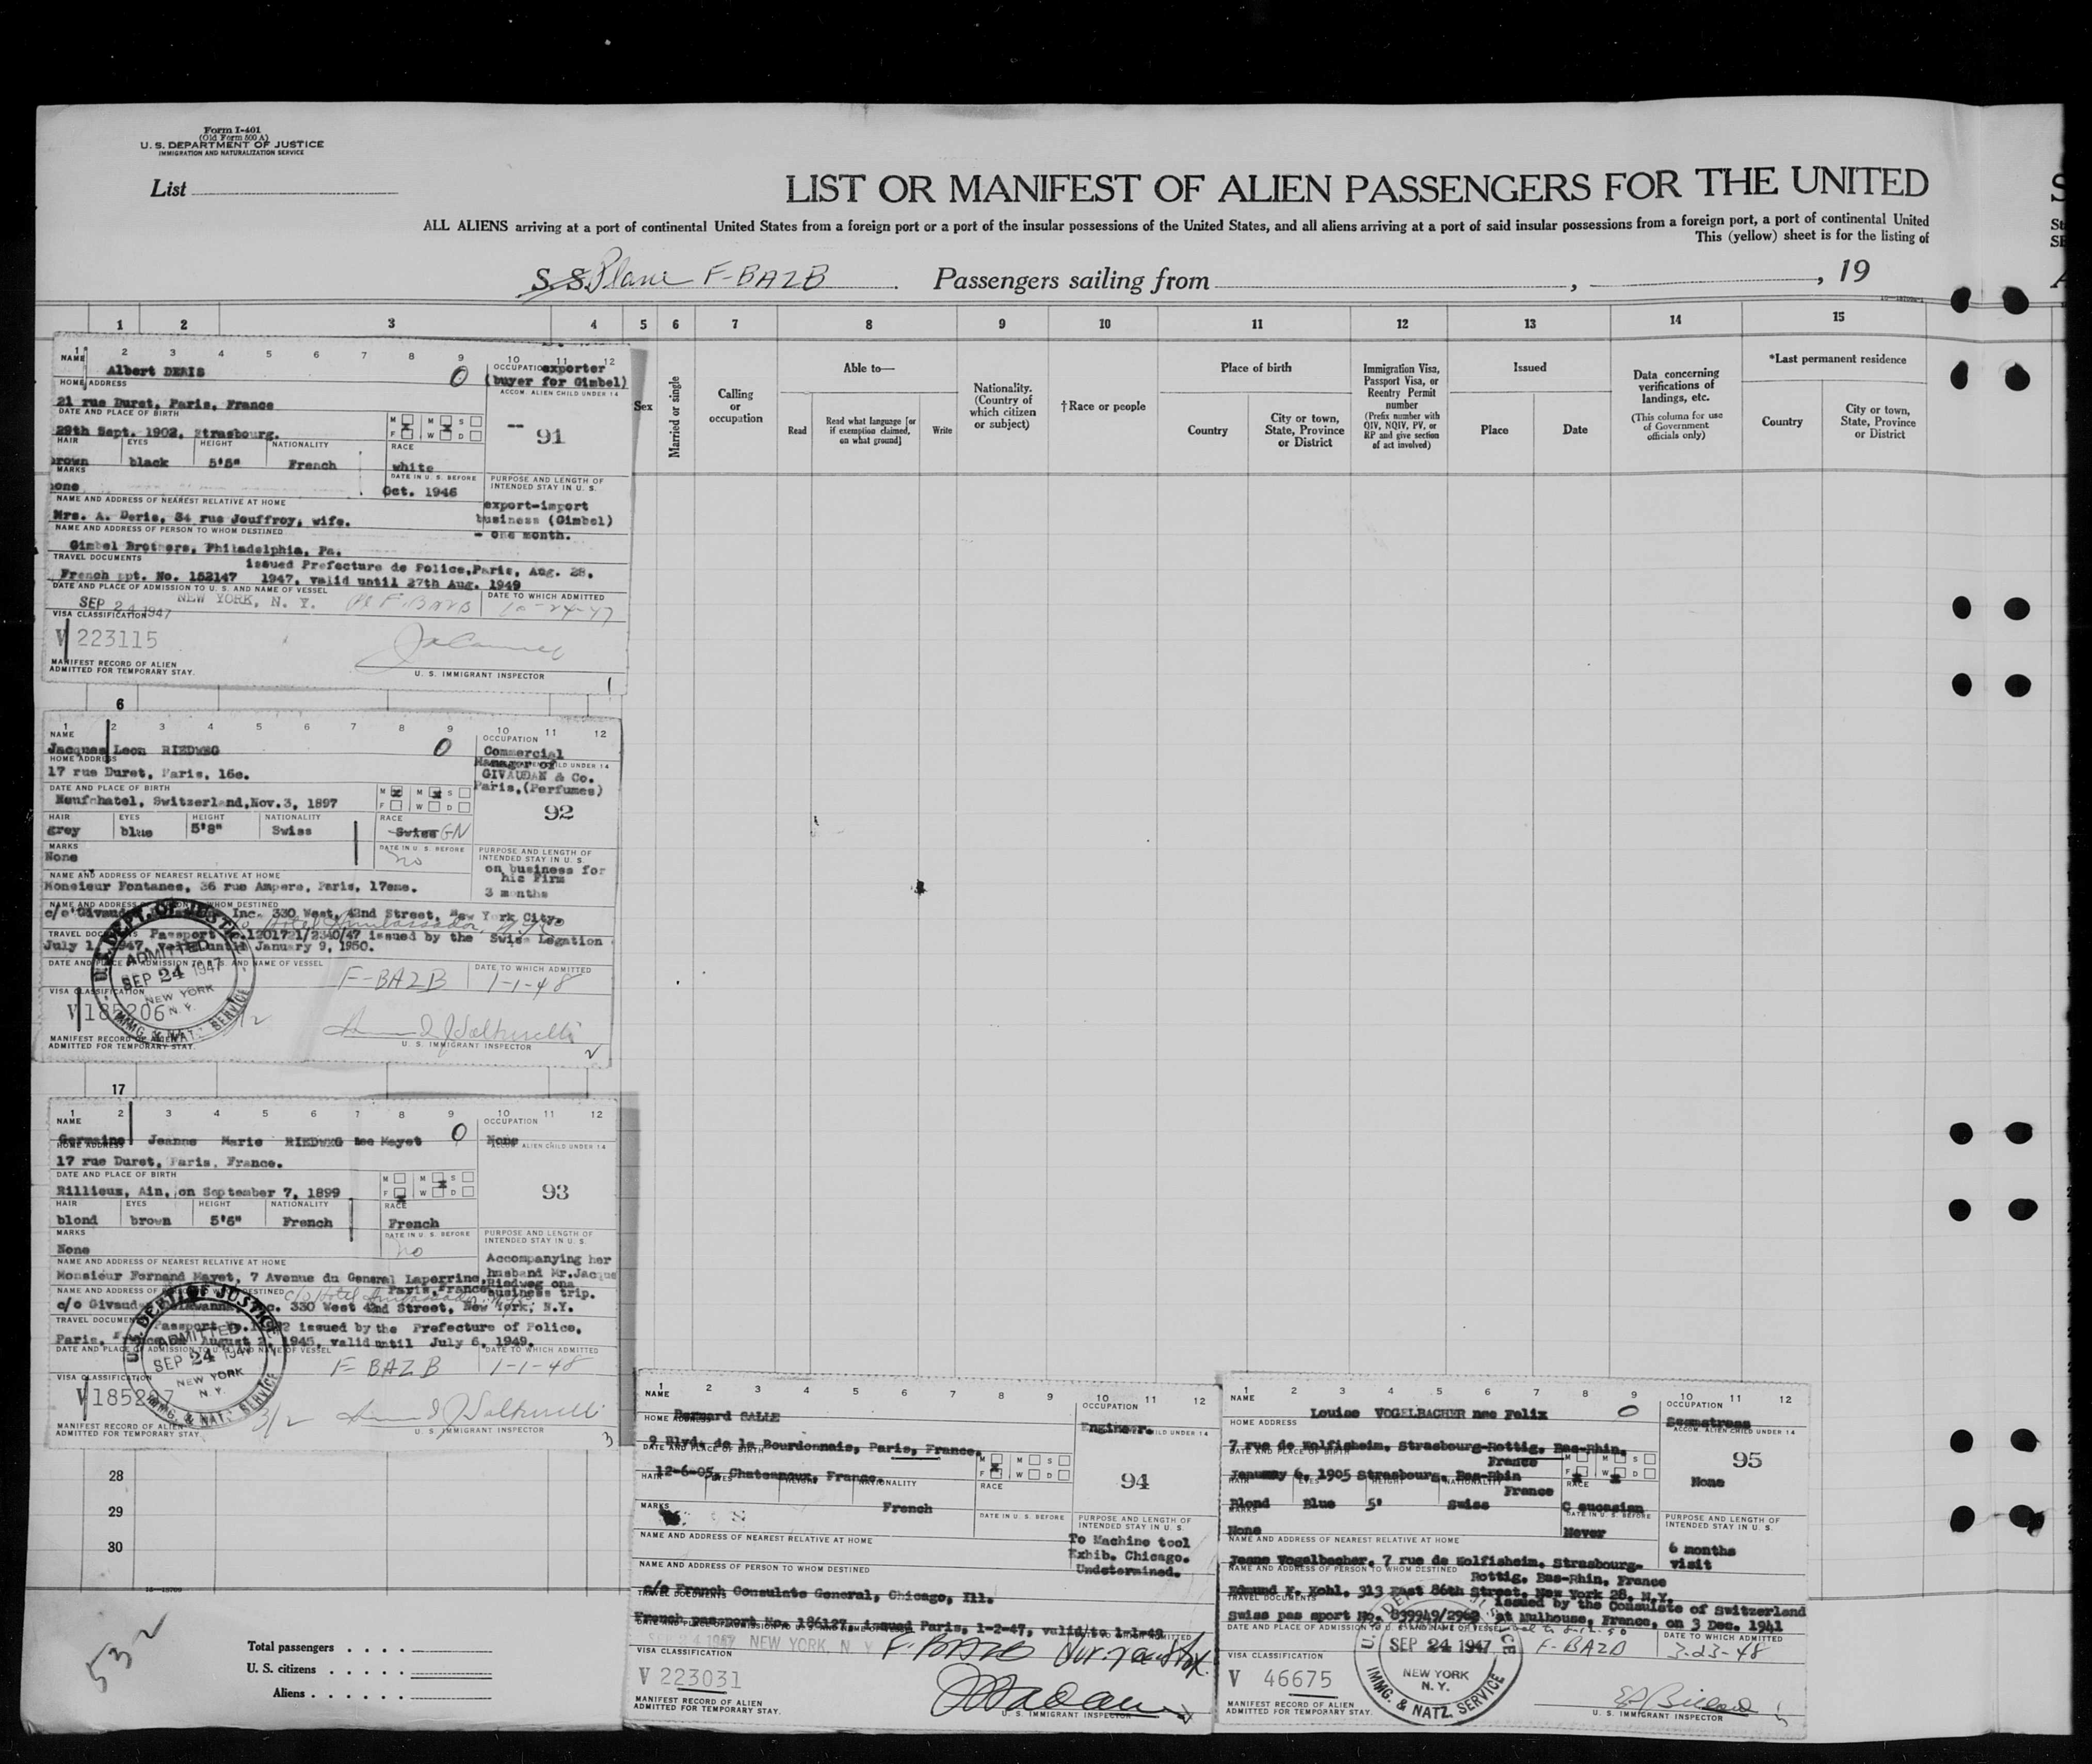 Form I-401
(Old Form 500 A)
U. S. DEPARTMENT OF JUSTICE
IMMIGRATION AND NATURALIZATION SERVICE
List
LIST OR MANIFEST OF ALIEN PASSENGERS FOR THE UNITED
ALL ALIENS arriving at a port of continental United States from a foreign port or a port of the insular possessions of the United States, and all aliens arriving at a port of said insular possessions from a foreign port, a port of continental United
This (yellow) sheet is for the listing of
S. S. Plane F-BAZB Passengers sailing from , , 19
1 2 3 4 5 6 7 8 9 10 11 12 13 14 15
Sex
Married or single
Calling or occupation
Able to—
Read
Read what language [or if exemption claimed, on what ground]
Write
Nationality. (Country of which citizen or subject)
†Race or people
Place of birth
Country
City or town, State, Province or District
Immigration Visa, Passport Visa, or Reentry Permit number
(Prefix number with QIV, NQIV, PV, or RP and give section of act involved)
Issued
Place
Date
Data concerning verifications of landings, etc.
(This column for use of Government officials only)
*Last permanent residence
Country
City or town, State, Province or District
1 2 3 4 5 6 7 8 9 10 11 12
NAME
Albert DERIS
0
OCCUPATION exporter
(buyer for Gimbel)
HOME ADDRESS
ACCOM. ALIEN CHILD UNDER 14
21 rue Duret, Paris, France
DATE AND PLACE OF BIRTH
M M S
F W D
--
91
29th Sept. 1902, Strasbourg.
HAIR EYES HEIGHT NATIONALITY RACE
brown black 5'5" French white
MARKS
DATE IN U. S. BEFORE
PURPOSE AND LENGTH OF INTENDED STAY IN U. S.
none
Oct. 1946
NAME AND ADDRESS OF NEAREST RELATIVE AT HOME
export-import
Mrs. A. Deris, 34 rue Jouffroy, wife.
business (Gimbel)
NAME AND ADDRESS OF PERSON TO WHOM DESTINED
- one month.
Gimbel Brothers, Philadelphia, Pa.
TRAVEL DOCUMENTS
issued Prefecture de Police,Paris, Aug. 28,
French ppt. No. 152147 1947, valid until 27th Aug. 1949
DATE AND PLACE OF ADMISSION TO U. S. AND NAME OF VESSEL
DATE TO WHICH ADMITTED
SEP 24 1947 NEW YORK, N. Y. F-BAZB 10-24-47
VISA CLASSIFICATION
V 223115
MANIFEST RECORD OF ALIEN
ADMITTED FOR TEMPORARY STAY.
U. S. IMMIGRANT INSPECTOR
1
6
1 2 3 4 5 6 7 8 9 10 11 12
NAME
OCCUPATION
Jacques Leon RIEDWEG
0
Commercial
HOME ADDRESS
Manager of
17 rue Duret, Paris, 16e.
GIVAUDAN & Co.
DATE AND PLACE OF BIRTH
M M S
F W D
Paris,(Perfumes)
Neufchatel, Switzerland,Nov.3, 1897
92
HAIR EYES HEIGHT NATIONALITY RACE
grey blue 5'8" Swiss Swiss GN
MARKS
DATE IN U. S. BEFORE
PURPOSE AND LENGTH OF INTENDED STAY IN U. S.
None
no
on business for
NAME AND ADDRESS OF NEAREST RELATIVE AT HOME
his Firm
Monsieur Fontanes, 36 rue Ampere, Paris, 17eme.
3 months
NAME AND ADDRESS OF PERSON TO WHOM DESTINED
c/o Givaudan Inc. 330 West, 42nd Street, New York City.
Hotel Ambassador, NYC
TRAVEL DOCUMENTS
Passport No.1201721/2340/47 issued by the Swiss Legation
July 1, 1947, valid until January 9, 1950.
DATE AND PLACE OF ADMISSION TO U. S. AND NAME OF VESSEL
DATE TO WHICH ADMITTED
F-BAZB 1-1-48
U. S. DEPT. OF JUSTICE
ADMITTED
SEP 24 1947
NEW YORK
N. Y.
IMMG. & NAT. SERVICE
VISA CLASSIFICATION
V 185206
MANIFEST RECORD OF ALIEN
ADMITTED FOR TEMPORARY STAY.
U. S. IMMIGRANT INSPECTOR
2
17
1 2 3 4 5 6 7 8 9 10 11 12
NAME
OCCUPATION
Germaine Jeanne Marie RIEDWEG nee Mayet
0
None
HOME ADDRESS
ACCOM. ALIEN CHILD UNDER 14
17 rue Duret, Paris, France.
DATE AND PLACE OF BIRTH
M M S
F W D
Rillieux, Ain, on September 7, 1899
93
HAIR EYES HEIGHT NATIONALITY RACE
blond brown 5'6" French French
MARKS
DATE IN U. S. BEFORE
PURPOSE AND LENGTH OF INTENDED STAY IN U. S.
None
no
NAME AND ADDRESS OF NEAREST RELATIVE AT HOME
Accompanying her
Monsieur Fernand Mayet, 7 Avenue du General Laperrine,
husband Mr.Jacque
Riedweg ona
Paris,France
business trip.
NAME AND ADDRESS OF PERSON TO WHOM DESTINED
c/o Hotel Ambassador
c/o Givaudan Delawanna Inc. 330 West 42nd Street, New York, N.Y.
TRAVEL DOCUMENTS
Passport issued by the Prefecture of Police,
Paris, France on August 2, 1945, valid until July 6, 1949.
DATE AND PLACE OF ADMISSION TO U. S. AND NAME OF VESSEL
DATE TO WHICH ADMITTED
F BAZB 1-1-48
U. S. DEPT. OF JUSTICE
ADMITTED
SEP 24 1947
NEW YORK
N. Y.
IMMG. & NAT. SERVICE
VISA CLASSIFICATION
V 185207
3/2
MANIFEST RECORD OF ALIEN
ADMITTED FOR TEMPORARY STAY.
U. S. IMMIGRANT INSPECTOR
3
28
29
30
1 2 3 4 5 6 7 8 9 10 11 12
NAME
OCCUPATION
Bernard SALLE
Engineer.
HOME ADDRESS
9 Blvd. de la Bourdonnais, Paris, France.
DATE AND PLACE OF BIRTH
M M S
F W D
12-6-05, Chateauroux, France.
94
HAIR EYES HEIGHT NATIONALITY RACE
French
MARKS
DATE IN U. S. BEFORE
PURPOSE AND LENGTH OF INTENDED STAY IN U. S.
NAME AND ADDRESS OF NEAREST RELATIVE AT HOME
To Machine tool
Exhib. Chicago.
Undetermined.
NAME AND ADDRESS OF PERSON TO WHOM DESTINED
c/o French Consulate General, Chicago, Ill.
TRAVEL DOCUMENTS
French passport No. 186127, issued Paris, 1-2-47, valid/to 1-1-49
SEP 24 1947 NEW YORK, N. Y. F. BAZB
VISA CLASSIFICATION
V 223031
MANIFEST RECORD OF ALIEN
ADMITTED FOR TEMPORARY STAY.
U. S. IMMIGRANT INSPECTOR
1 2 3 4 5 6 7 8 9 10 11 12
NAME
OCCUPATION
Louise VOGELBACHER nee Felix
0
Seamstress
HOME ADDRESS
ACCOM. ALIEN CHILD UNDER 14
7 rue de Wolfisheim, Strasbourg-Rottig, Bas-Rhin,
France
95
DATE AND PLACE OF BIRTH
M M S
F W D
January 6, 1905 Strasbourg, Bas-Rhin
France
None
HAIR EYES HEIGHT NATIONALITY RACE
Blond Blue 5' Swiss Caucasian
MARKS
DATE IN U. S. BEFORE
PURPOSE AND LENGTH OF INTENDED STAY IN U. S.
None
Never
NAME AND ADDRESS OF NEAREST RELATIVE AT HOME
6 months
visit
Jeane Vogelbacher, 7 rue de Wolfisheim, Strasbourg-
Rottig, Bas-Rhin, France
NAME AND ADDRESS OF PERSON TO WHOM DESTINED
Edmund F. Kohl, 313 East 86th Street, New York 28, N.Y.
TRAVEL DOCUMENTS
issued by the Consulate of Switzerland
Swiss pas sport No. 899949/2962 at Mulhouse, France, on 3 Dec. 1941
DATE AND PLACE OF ADMISSION TO U. S. AND NAME OF VESSEL
DATE TO WHICH ADMITTED
F-BAZB 3-23-48
SEP 24 1947
NEW YORK
N. Y.
IMMG. & NATZ. SERVICE
VISA CLASSIFICATION
V 46675
MANIFEST RECORD OF ALIEN
ADMITTED FOR TEMPORARY STAY.
U. S. IMMIGRANT INSPECTOR
532
Total passengers
U. S. citizens
Aliens